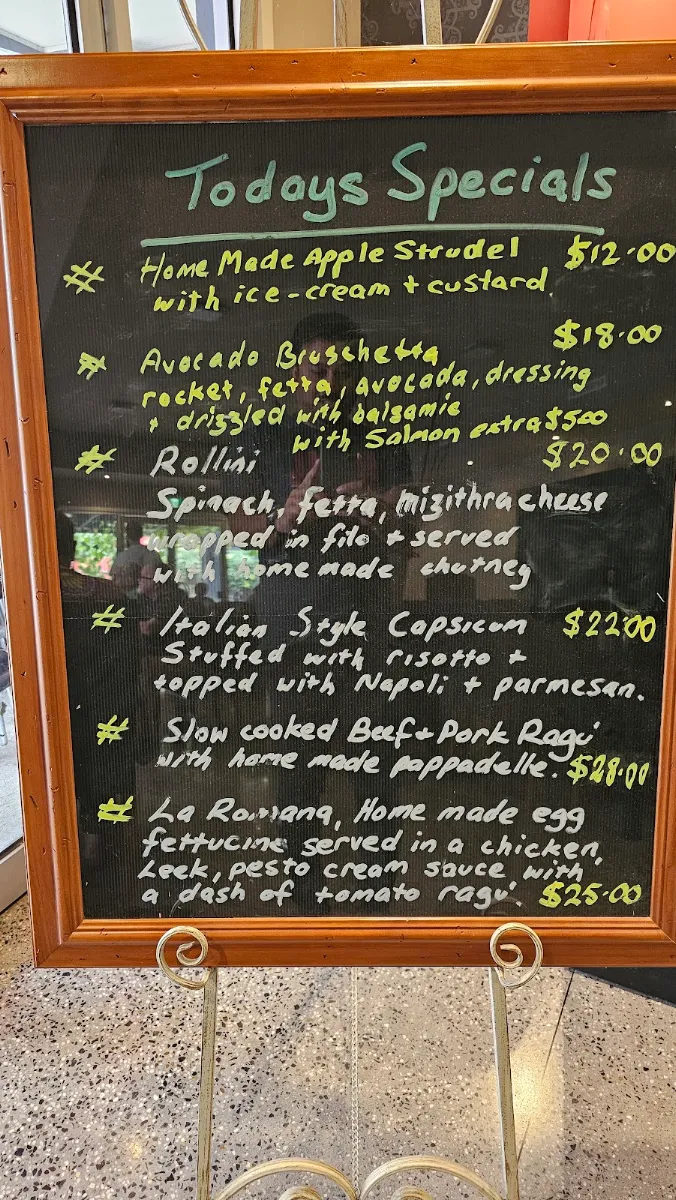 Todays Specials
# Home Made Apple Strudel $12.00
with ice-cream + custard
$18.00
# Avocado Bruschetta
rocket, fetta, avocada, dressing
+ drizzled with balsamic
with Salmon extra $500
# Rollini $20.00
Spinach, fetta, mizithra cheese
wrapped in filo + served
with home made chutney
# Italian Style Capsicum $22.00
Stuffed with risotto +
topped with Napoli + parmesan.
# Slow cooked Beef + Pork Ragu'
with home made pappadelle. $28.00
# La Romana, Home made egg
fettucine served in a chicken,
Leek, pesto cream sauce with
a dash of tomato ragu'. $25.00